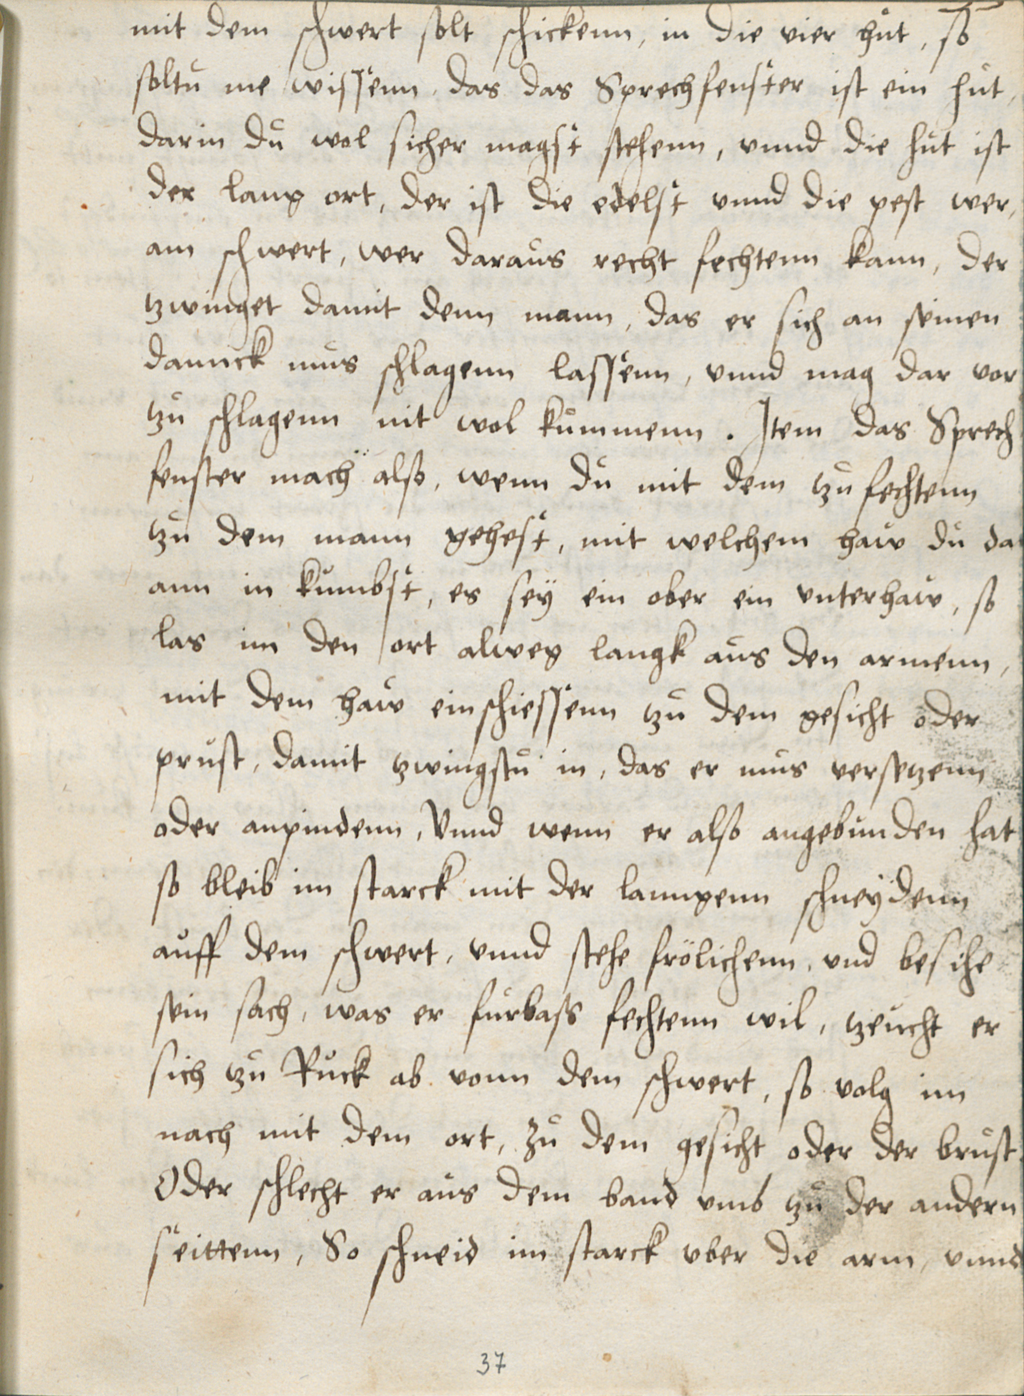 mit dem schwert solt schickenn, in die vier hut, so
soltu nue wissenn das das Sprechfenster ist ein hut,
darin du wol sicher magst stehenn, vnnd die hut ist
der lang ort, der ist die edelst vnnd die pest wer,
am schwert, wer daraus recht fechtenn kann, der
tzwinget damit denn mann, das er sich an seinen
dannck mus schlagenn lassenn, vnnd mag dar vor
tzu schlagenn nit wol kummenn. Item das Sprech
fenster mach also, wenn du mit dem tzufechtenn
tzu dem mann gehest, mit welchem haw du da
ann in kumbst, es seÿ ein ober ein vnterhaw, so
las im den ort alweg langk aus den armenn,
mit dem haw einschiessenn tzu dem gesicht oder
prust, damit tzwingstu in, das er mus versetzenn
oder anpindenn, Vnnd wenn er also angebunden hat
so bleib im starck mit der lanngenn schneÿdenn
auff dem schwert, vnnd stehe frölichenn, vnd besihe
sein sach, was er furbass fechtenn wil, tzeucht er
sich tzu Ruck ab vonn dem schwert, so volg im
nach mit dem ort, zu dem gesicht oder der brust
Oder schlecht er aus dem band vmb tzu der andern
seittenn, So schneid im starck vber die arm, vnnd
37